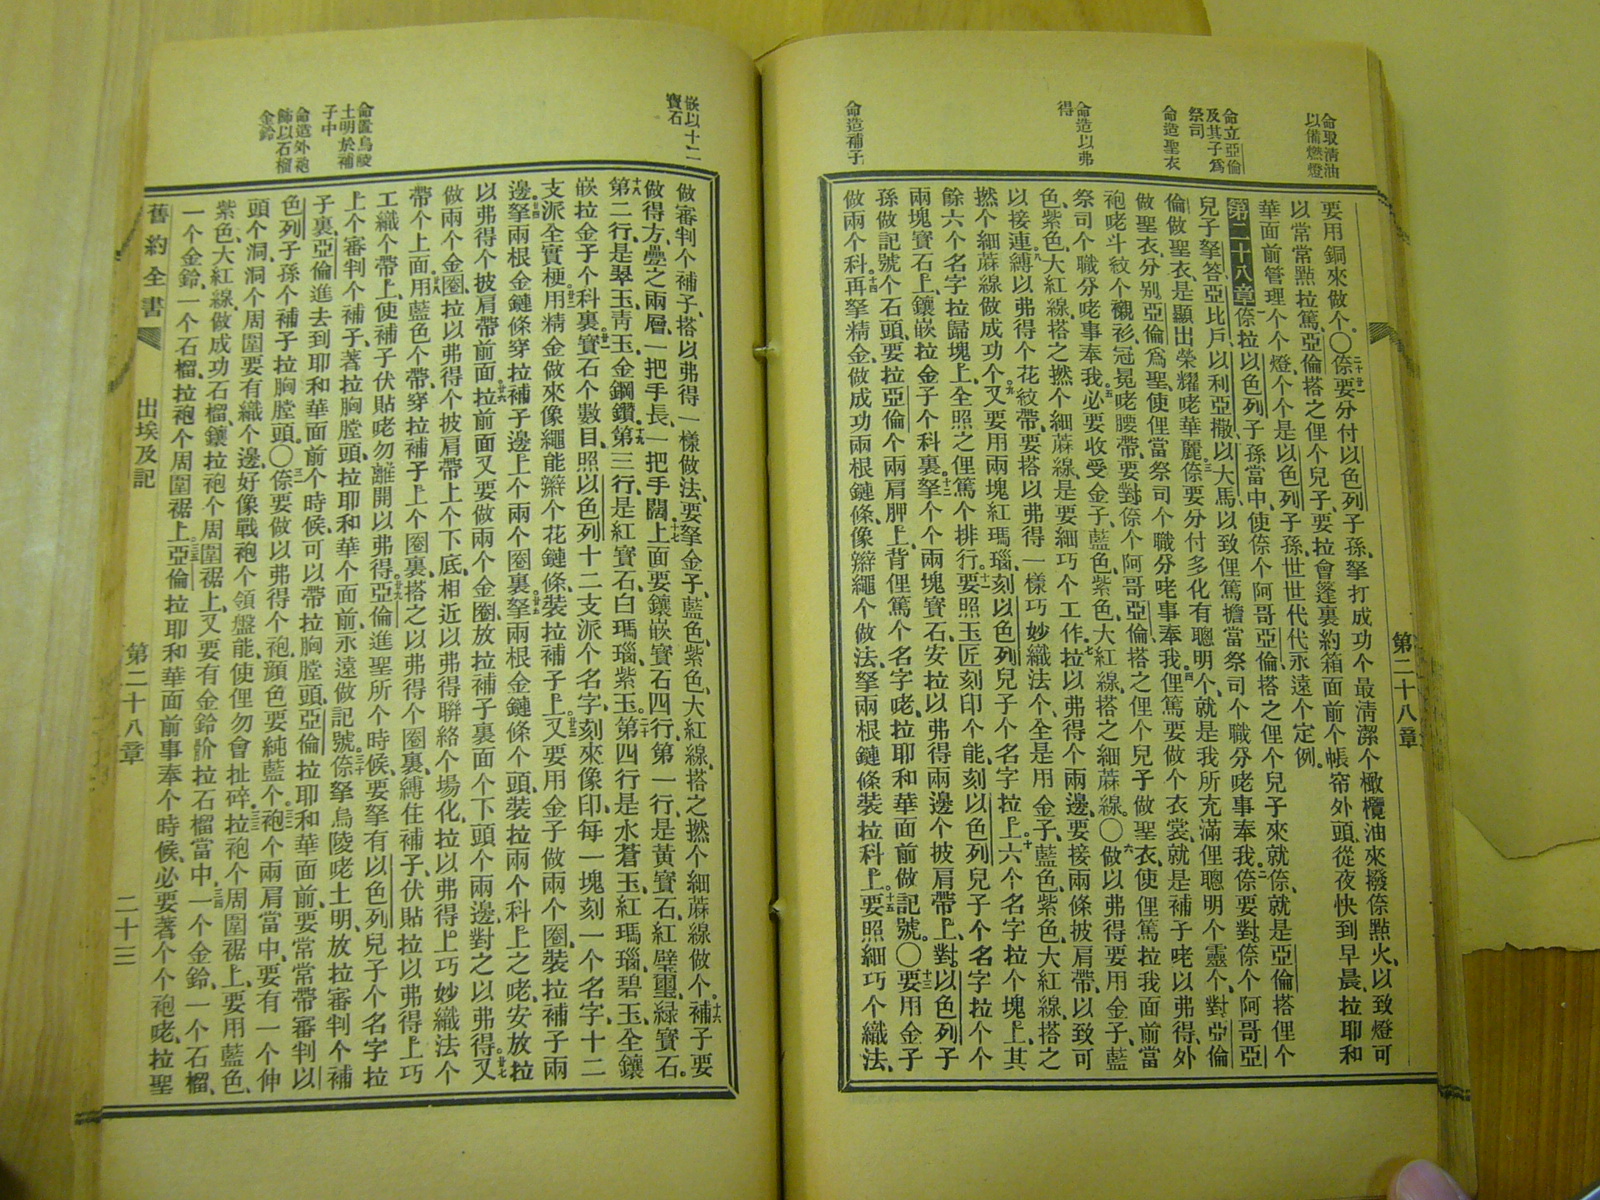 命取清油
以備燃燈
命立亞倫
及其子爲
祭司
命造聖衣
命造以弗
得
命造補子
第二十八章
要用銅來做个〇二十廿一㑚要分付以色列子孫、拏打成功个最清潔个橄欖油來撥㑚點火、以致燈可
以常常點拉篤、亞倫搭之俚个兒子、要拉會篷裏約箱面前个帳帘外頭從夜快到早晨、拉耶和
華面前管理个个燈、个个是以色列子孫、世世代代永遠个定例。
第二十八章㑚拉以色列子孫當中、使㑚个阿哥亞倫、搭之俚个兒子來就㑚、就是亞倫搭俚个
兒子拏答、亞比戶、以利亞撒、以大馬、以致俚篤擔當祭司个職分咾事奉我、二㑚要對㑚个阿哥亞
倫做聖衣、是顯出榮耀咾華麗、三㑚要分付多化有聰明个、就是我所充滿俚聰明个靈个、對亞倫
做聖衣分别亞倫爲聖、使俚當祭司个職分咾事奉我、四俚篤要做个衣裳、就是補子咾以弗得、外
袍咾斗紋个襯衫、冠冕咾腰帶、要對㑚个阿哥亞倫、搭之俚个兒子做聖衣、使俚篤拉我面前當
祭司个職分咾事奉我、五必要收受金子、藍色、紫色、大紅線、搭之細蔴線。〇六做以弗得要用金子、藍
色、紫色、大紅線、搭之撚个細蔴線、是要細巧个工作、七拉以弗得个兩邊、要接兩條披肩帶、以致可
以接連、八縛以弗得个花紋帶、要搭以弗得一樣巧妙織法个、全是用金子、藍色、紫色、大紅線、搭之
撚个細蔴線做成功个、九又要用兩塊紅瑪瑙、刻以色列兒子个名字拉上、十六个名字拉个塊上、其
餘六个名字拉歸塊上、全照之俚篤个排行。十一要照玉匠刻印个能、刻以色列兒子个名字拉个个
兩塊寶石上、鑲嵌拉金子个科裏、十二拏个个兩塊寶石、安拉以弗得兩邊个披肩帶上、對以色列子
孫做記號个石頭、要拉亞倫个兩肩胛上、背俚篤个名字咾、拉耶和華面前做記號。〇十三要用金子
做兩个科、十四再拏精金、做成功兩根鏈條、像辮繩个做法、拏兩根鏈條裝拉科上、十五要照細巧个織法、
嵌以十二
寶石
命置烏陵
土明於補
子中
命造外袍
飾以石榴
金鈴
做審判个補子、搭以弗得一樣做法、要拏金子、藍色、紫色、大紅線、搭之撚个細蔴線做个。十六補子要
做得方、疊之兩層、一把手長、一把手闊。十七上面要鑲嵌寶石四行、第一行、是黃寶石、紅璧璽、綠寶石。
十八第二行、是翠玉、青玉、金鋼鑽、十九第三行、是紅寶石、白瑪瑙、紫玉。二十第四行、是水蒼玉、紅瑪瑙、碧玉、全鑲
嵌拉金子个科裏、廿一寶石个數目、照以色列十二支派个名字、刻來像印、每一塊刻一个名字、十二
支派全實梗、廿二用精金做來像繩能辮个花鏈條、裝拉補子上。廿三又要用金子做兩个圈、裝拉補子兩
邊、廿四拏兩根金鏈條、穿拉補子邊上个兩个圈裏、廿五拏兩根金鏈條个頭、裝拉兩个科上之咾、安放拉
以弗得个披肩帶前面、廿六拉前面又要做兩个金圈、放拉補子裏面个下頭个兩邊、對之以弗得、廿七又
做兩个金圈、拉以弗得个披肩帶上个下底、相近以弗得聯絡个場化、拉以弗得上巧妙織法个
帶个上面、廿八用藍色个帶、穿拉補子上个圈裏、搭之以弗得个圈裏、縛住補子、伏貼拉以弗得上巧
工織个帶上、使補子伏貼咾勿離開以弗得、廿九亞倫進聖所个時候、要拏有以色列兒子个名字拉
上个審判个補子、著拉胸膛頭、拉耶和華个面前、永遠做記號。三十㑚拏烏陵咾土明、放拉審判个補
子裏、亞倫進去到耶和華面前个時候、可以帶拉胸膛頭、亞倫拉耶和華面前、要常常帶審判以
色列子孫个補子拉胸膛頭。〇三一㑚要做以弗得个袍、顏色要純藍个。三二袍个兩肩當中、要有一个伸
頭个洞、洞个周圍要有織个邊、好像戰袍个領盤能、使俚勿會扯碎、三三拉袍个周圍裾上、要用藍色、
紫色、大紅線、做成功石榴、鑲拉袍个周圍裾上、又要有金鈴、拉石榴當中、三四一个金鈴、一个石榴、
一个金鈴、一个石榴、拉袍个周圍裾上、三五亞倫拉耶和華面前事奉个時候、必要著个个袍咾、拉聖
舊約全書
出埃及記
第二十八章
二十三